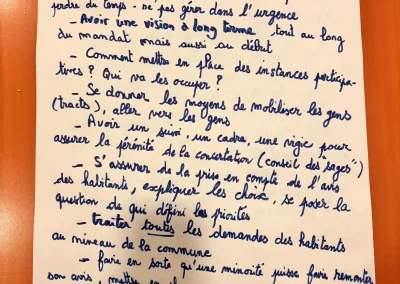 perdre du temps - ne pas gérer dans l'urgence
- Avoir une vision à long terme tout au long
du mandat mais aussi au début
- Comment mettre en place des instances participa-
tives ? Qui va les occuper ?
- Se donner les moyens de mobiliser les gens
(tracts), aller vers les gens
- Avoir un suivi, un cadre, une vigie pour
assurer la pérénité de la concertation (conseil des "sages")
- S'assurer de la prise en compte de l'avis
des habitants, expliquer les choix, se poser la
question de qui défini les priorités
- traiter toutes les demandes des habitants
au niveau de la commune
- faire en sorte qu'une minorité puisse faire remonter
son avis, mettre en